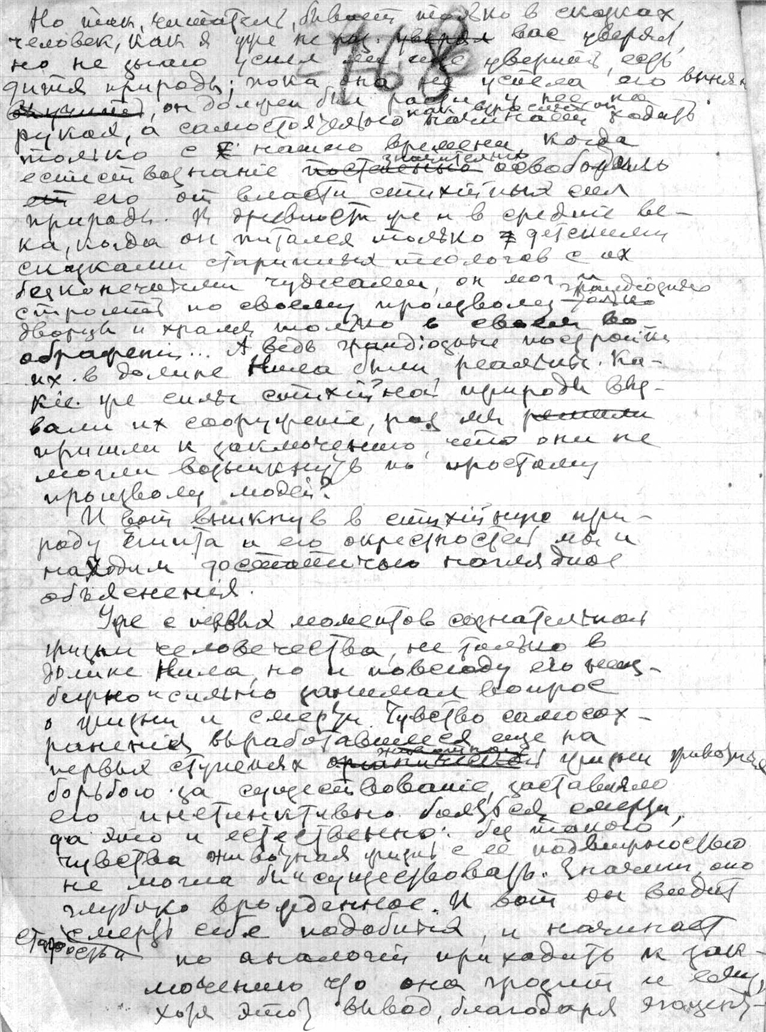 Но так, читатель, бывает только в сказках,
человек, как я уже не раз вас уверял,
но не знаю успел ли уверить, есть
дитя природы; пока она не успела его вынян
он должен был расти у нее на
руках, а самостоятельно как взрослый начинает ходить
только с нашего времени, когда
естествознание значительно освободило
его от власти стихійных сил
природы. В древности же и в средніе ве-
ка, когда он питался только детскими
сказками старинных теологов с их
безконечными чудесами, он мог и
строить по своему произволу грандіозные
дворцы и храмы только в своем во
ображеніи... А ведь грандіозные постройки
их в долине Нила были реальны. Ка-
кіе же силы стихійной природы выз-
вали их сооруженіе, раз мы решили
пришли к заключенію, что они не
могли возникнуть по простому
произволу людей?
И вот вникнув в стихійную при-
роду Египта и его окрестностей мы и
находим достаточно наглядное
объяснения.
Уже с первых моментов сознательной
жизни человечества, не только в
долине Нила, но и повсюду его
сильно занимал вопрос
о жизни и смерти. Чувство самосох-
ранения выработавшееся еще на
первых ступенях животной жизни
борьбою за существованіе, заставляло
его инстинктивно бояться смерти,
да это и естественно: без такого
чувства животная жизнь с ее подвижностью
не могла бы существовать. Значит, оно
глубоко врожденное. И вот он видит
смерть себе подобных, и начинает
старости
по аналогіи приходить к зак-
люченію что она грозит и ему,
хотя этот вывод, благодаря эгоцент-